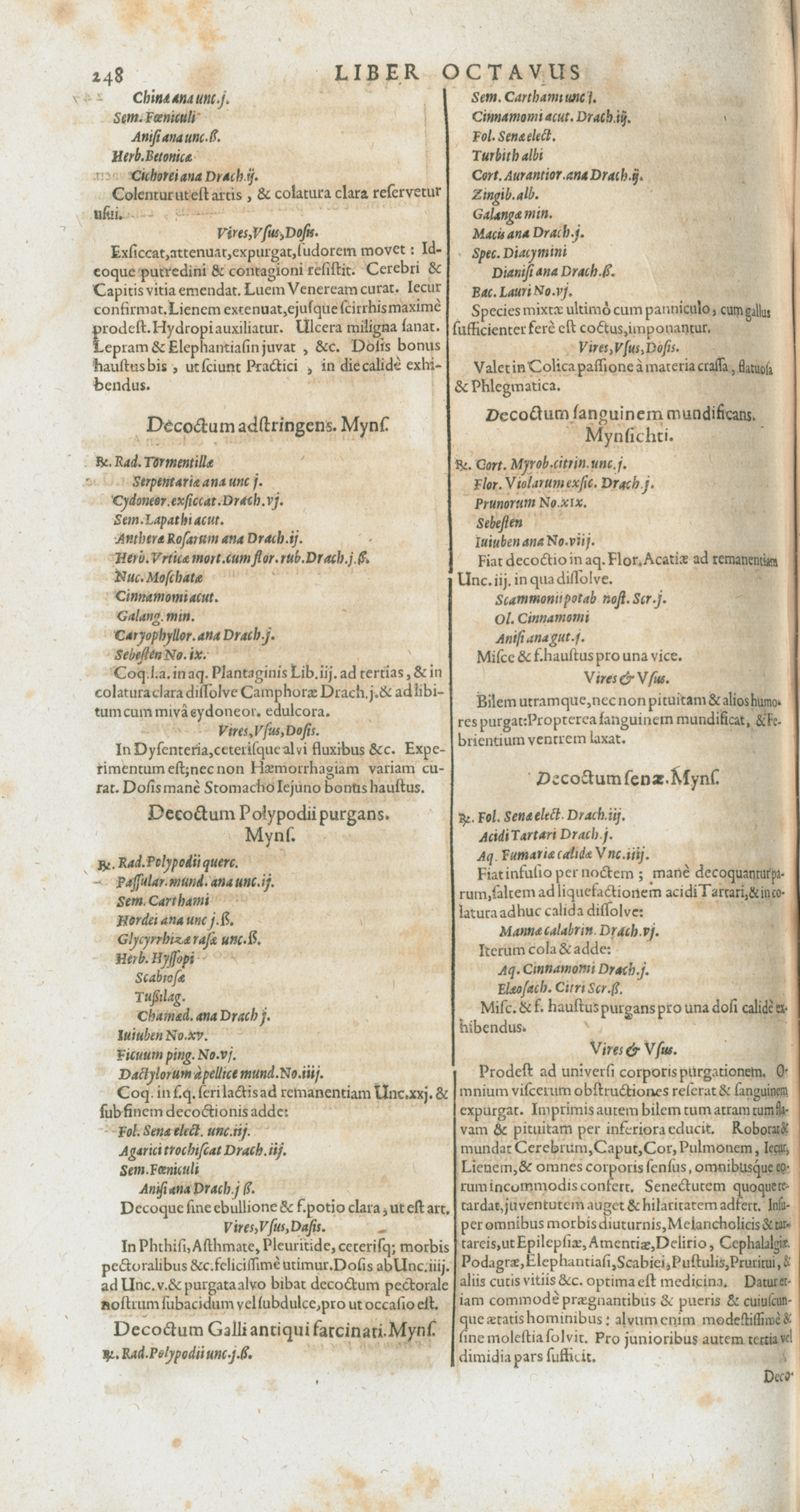 248 LIBER OCTAVUS
China ana unc.j.
Sem. Fœniculi
Aniſi ana unc.ß.
Herb. Betonicæ
Cichorei ana Drach.ij.
Colentur ut eſt artis, & colatura clara reſervetur
uſui.
Vires, Vſus, Doſis.
Exſiccat, attenuat, expurgat, ſudorem movet: Id-
eoque putredini & contagioni reſiſtit. Cerebri &
Capitis vitia emendat. Luem Veneream curat. Iecur
confirmat. Lienem extenuat, ejuſque ſcirrhis maximè
prodeſt. Hydropi auxiliatur. Ulcera miligna ſanat.
Lepram & Elephantiaſin juvat, &c. Doſis bonus
hauſtus bis, ut ſciunt Practici, in die calidè exhi-
bendus.
Decoctum adſtringens. Mynſ.
℞. Rad. Tormentillæ
Serpentariæ ana unc j.
Cydoneor. exſiccat. Drach.vj.
Sem. Lapathi acut.
Antheræ Roſarum ana Drach.ij.
Herb. Vrticæ mort. cum flor. rub. Drach.j.ß.
Nuc. Moſchatæ
Cinnamomi acut.
Galang. min.
Caryophyllor. ana Drach.j.
Sebeſten No. ix.
Coq. l.a. in aq. Plantaginis Lib.iij. ad tertias, & in
colatura clara diſſolve Camphoræ Drach.j. & ad libi-
tum cum mivâ cydoneor. edulcora.
Vires, Vſus, Doſis.
In Dyſenteria, ceteriſque alvi fluxibus &c. Expe-
rimentum eſt; nec non Hæmorrhagiam variam cu-
rat. Doſis manè Stomacho Iejuno bonus hauſtus.
Decoctum Polypodii purgans.
Mynſ.
℞. Rad. Polypodii querc.
Paſſular. mund. ana unc.ij.
Sem. Carthami
Hordei ana unc j.ß.
Glycyrrhizæ raſæ unc.ß.
Herb. Hyſſopi
Scabioſæ
Tußilag.
Chamæd. ana Drach j.
Iuiuben No.xv.
Ficuum ping. No.vj.
Dactylorum à pellice mund. No.iiij.
Coq. in ſ.q. ſeri lactis ad remanentiam Unc.xxj. &
ſub finem decoctionis adde:
Fol. Senæ elect. unc.iij.
Agarici trochiſcat Drach.iij.
Sem. Fœniculi
Aniſi ana Drach.j ß.
Decoque ſine ebullione & f. potio clara, ut eſt art.
Vires, Vſus, Daſis.
In Phthiſi, Aſthmate, Pleuritide, ceteriſq; morbis
pectoralibus &c. feliciſſimè utimur. Doſis ab Unc.iiij.
ad Unc.v. & purgata alvo bibat decoctum pectorale
noſtrum ſubacidum vel ſubdulce, pro ut occaſio eſt.
Decoctum Galli antiqui farcinati. Mynſ.
℞. Rad. Polypodii unc.j.ß.
Sem. Carthami unc j.
Cinnamomi acut. Drach.iij.
Fol. Senæ elect.
Turbith albi
Cort. Aurantior. ana Drach.ij.
Zingib. alb.
Galangæ min.
Macis ana Drach.j.
Spec. Diacymini
Dianiſi ana Drach.ß.
Bac. Lauri No.vj.
Species mixtæ ultimò cum panniculo, cum gallus
ſufficienter ferè eſt coctus, imponantur.
Vires, Vſus, Doſis.
Valet in Colica paſſione à materia craſſa, flatuoſa
& Phlegmatica.
Decoctum ſanguinem mundificans.
Mynſichti.
℞. Cort. Myrob. citrin. unc.j.
Flor. Violarum exſic. Drach.j.
Prunorum No.xix.
Sebeſten
Iuiuben ana No.viij.
Fiat decoctio in aq. Flor. Acatiæ ad remanentiam
Unc. iij. in qua diſſolve.
Scammonii potab noſt. Scr.j.
Ol. Cinnamomi
Aniſi ana gut.j.
Miſce & f. hauſtus pro una vice.
Vires & Vſus.
Bilem utramque, nec non pituitam & alios humo-
res purgat: Propterea ſanguinem mundificat, & Fe-
brientium ventrem laxat.
Decoctum ſenæ. Mynſ.
℞. Fol. Senæ elect. Drach.iij.
Acidi Tartari Drach.j.
Aq. Fumariæ calidæ Vnc.iiij.
Fiat infuſio per noctem; manè decoquantur pa-
rum, ſaltem ad liquefactionem acidi Tartari, & in co-
latura adhuc calida diſſolve:
Mannæ calabrin. Drach.vj.
Iterum cola & adde:
Aq. Cinnamomi Drach.j.
Elæoſach. Citri Scr.ß.
Miſc. & f. hauſtus purgans pro una doſi calidè ex-
hibendus.
Vires & Vſus.
Prodeſt ad univerſi corporis purgationem. O-
mnium viſcerum obſtructiones reſerat & ſanguinem
expurgat. Imprimis autem bilem tum atram tum fla-
vam & pituitam per inferiora educit. Roborat &
mundat Cerebrum, Caput, Cor, Pulmonem, Iecur,
Lienem, & omnes corporis ſenſus, omnibusque eo-
rum incommodis confert. Senectutem quoque re-
tardat, juventutem auget & hilaritatem adfert. Inſu-
per omnibus morbis diuturnis, Melancholicis & tar-
tareis, ut Epilepſiæ, Amentiæ, Delirio, Cephalalgiæ.
Podagræ, Elephantiaſi, Scabiei, Puſtulis, Pruritui, &
aliis cutis vitiis &c. optima eſt medicina. Datur et-
iam commodè prægnantibus & pueris & cuiuſcun-
que ætatis hominibus: alvum enim modeſtiſſimè &
ſine moleſtia ſolvit. Pro junioribus autem tertia vel
dimidia pars ſufficit.
Deco-